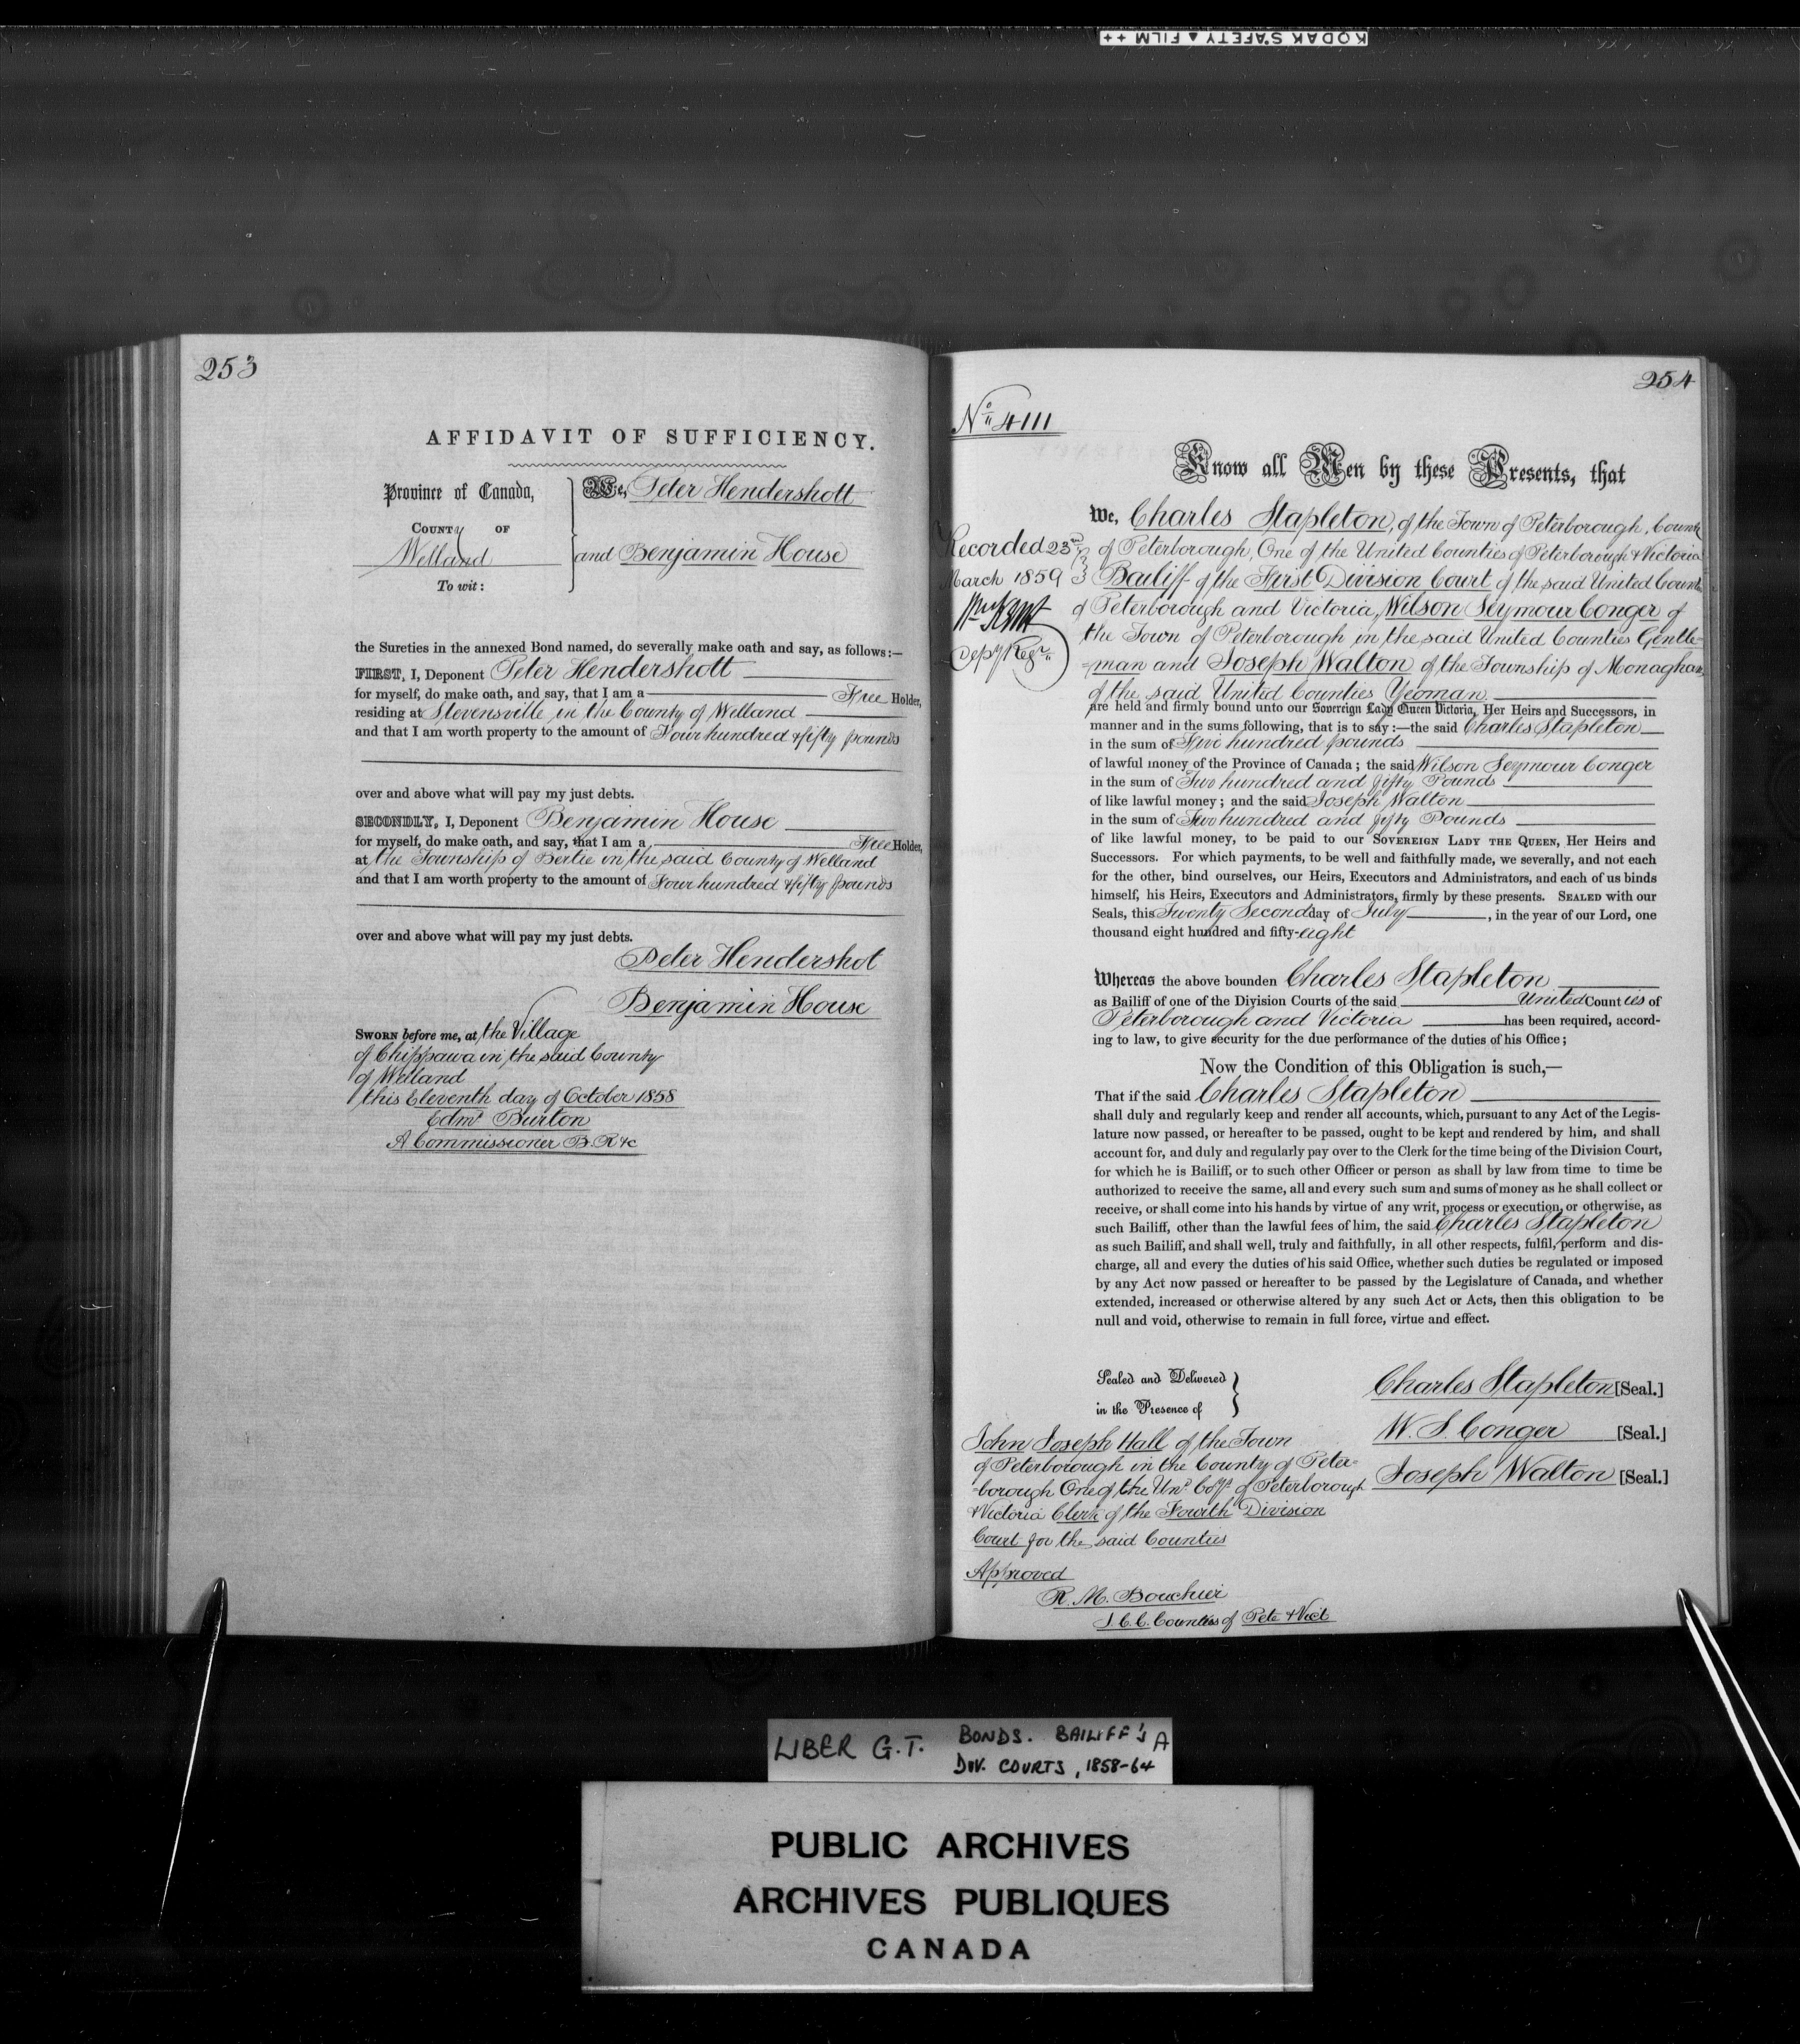 KODAK SAFETY ▲ FILM ++
253
AFFIDAVIT OF SUFFICIENCY.
Province of Canada,
County of
Welland
To wit:
We, Peter Hendershott
and Benjamin House
the Sureties in the annexed Bond named, do severally make oath and say, as follows:—
FIRST, I, Deponent Peter Hendershott
for myself, do make oath, and say, that I am a Free Holder,
residing at Stevensville in the County of Welland
and that I am worth property to the amount of Four hundred & fifty pounds
over and above what will pay my just debts.
SECONDLY, I, Deponent Benjamin House
for myself, do make oath, and say, that I am a Free Holder,
at the Township of Bertie in the said County of Welland
and that I am worth property to the amount of Four hundred & fifty pounds
over and above what will pay my just debts.
Peter Hendershot
Benjamin House
Sworn before me, at the Village
of Chippawa in the said County
of Welland
this Eleventh day of October 1858
Edmd Burton
A Commissioner B.R &c
254
No 4111
Know all Men by these Presents, that
We, Charles Stapleton, of the Town of Peterborough, County
of Peterborough, One of the United Counties of Peterborough & Victoria
Bailiff of the First Division Court of the said United Counties
of Peterborough and Victoria, Wilson Seymour Conger of
the Town of Peterborough in the said United Counties Gentle=
=man and Joseph Walton of the Township of Monaghan
of the said United Counties Yeoman
Recorded 23rd
March 1859
Depy Regr
are held and firmly bound unto our Sovereign Lady Queen Victoria, Her Heirs and Successors, in
manner and in the sums following, that is to say:—the said Charles Stapleton
in the sum of Five hundred pounds
of lawful money of the Province of Canada; the said Wilson Seymour Conger
in the sum of Two hundred and fifty Pounds
of like lawful money; and the said Joseph Walton
in the sum of Two hundred and fifty Pounds
of like lawful money, to be paid to our Sovereign Lady the Queen, Her Heirs and
Successors. For which payments, to be well and faithfully made, we severally, and not each
for the other, bind ourselves, our Heirs, Executors and Administrators, and each of us binds
himself, his Heirs, Executors and Administrators, firmly by these presents. Sealed with our
Seals, this Twenty Second day of July, in the year of our Lord, one
thousand eight hundred and fifty-eight
Whereas the above bounden Charles Stapleton
as Bailiff of one of the Division Courts of the said United Counties of
Peterborough and Victoria has been required, accord-
ing to law, to give security for the due performance of the duties of his Office;
Now the Condition of this Obligation is such,—
That if the said Charles Stapleton
shall duly and regularly keep and render all accounts, which, pursuant to any Act of the Legis-
lature now passed, or hereafter to be passed, ought to be kept and rendered by him, and shall
account for, and duly and regularly pay over to the Clerk for the time being of the Division Court,
for which he is Bailiff, or to such other Officer or person as shall by law from time to time be
authorized to receive the same, all and every such sum and sums of money as he shall collect or
receive, or shall come into his hands by virtue of any writ, process or execution, or otherwise, as
such Bailiff, other than the lawful fees of him, the said Charles Stapleton
as such Bailiff, and shall well, truly and faithfully, in all other respects, fulfil, perform and dis-
charge, all and every the duties of his said Office, whether such duties be regulated or imposed
by any Act now passed or hereafter to be passed by the Legislature of Canada, and whether
extended, increased or otherwise altered by any such Act or Acts, then this obligation to be
null and void, otherwise to remain in full force, virtue and effect.
Sealed and Delivered
in the Presence of
John Joseph Hall of the Town
of Peterborough in the County of Peter=
=borough One of the Und Cotys of Peterborough
& Victoria Clerk of the Fourth Division
Court for the said Counties
Charles Stapleton [Seal.]
W. S. Conger [Seal.]
Joseph Walton [Seal.]
Approved
R. M. Bouchier
J.C.C. Counties of Pete & Vict
LIBER G.T. BONDS. BAILIFF'S A
DIV. COURTS, 1858-64
PUBLIC ARCHIVES
ARCHIVES PUBLIQUES
CANADA